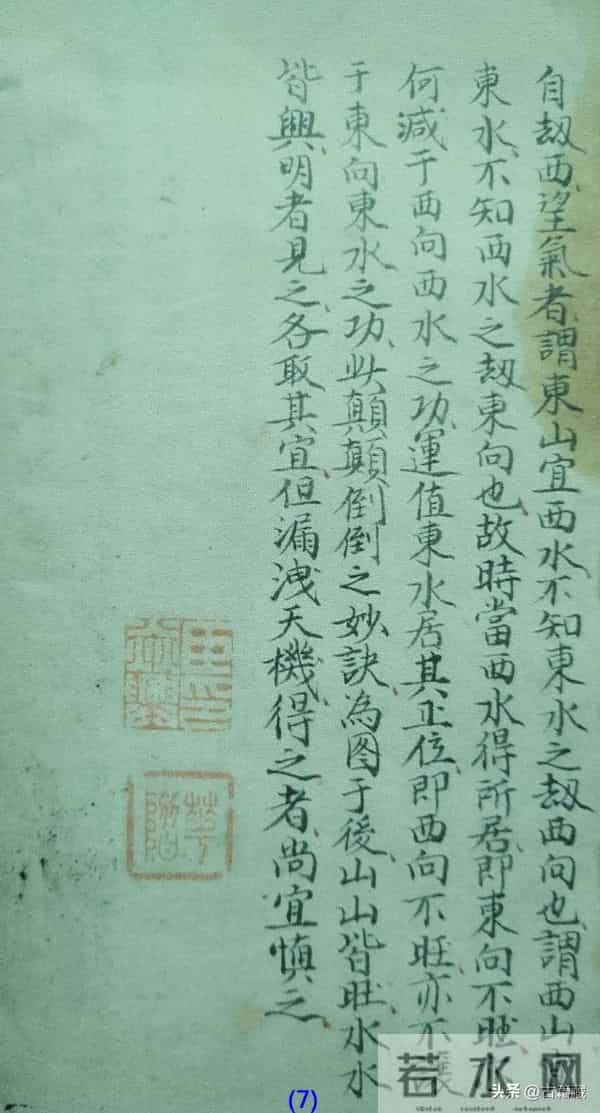 自刼西望氣者謂東山宜西水不知東水之刼西向也謂西山宜
東水不知西水之刼東向也故時當西水得所居即東向不旺
何減于西向西水之功運值東水居其正位即西向不旺亦不
于東向東水之功此顛顛倒倒之妙訣為图于後山山皆旺水水
皆興明者見之各取其宜但漏洩天機得之者尚宜慎之
(7)
若水网
头条 @古籍藏